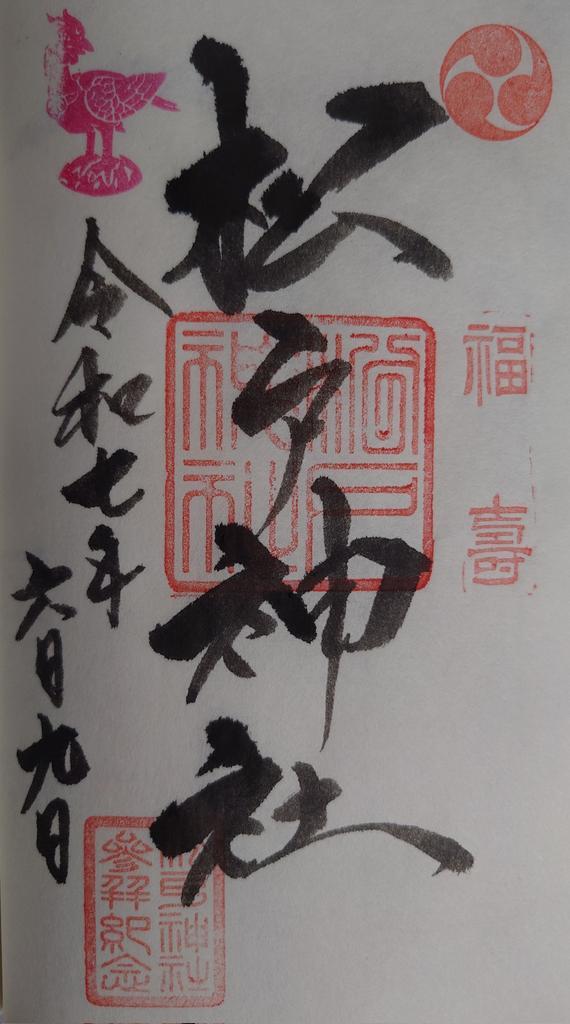 福壽
松戸神社
松戸神社
松戸神社
參拜紀念
令和七年
六月九日